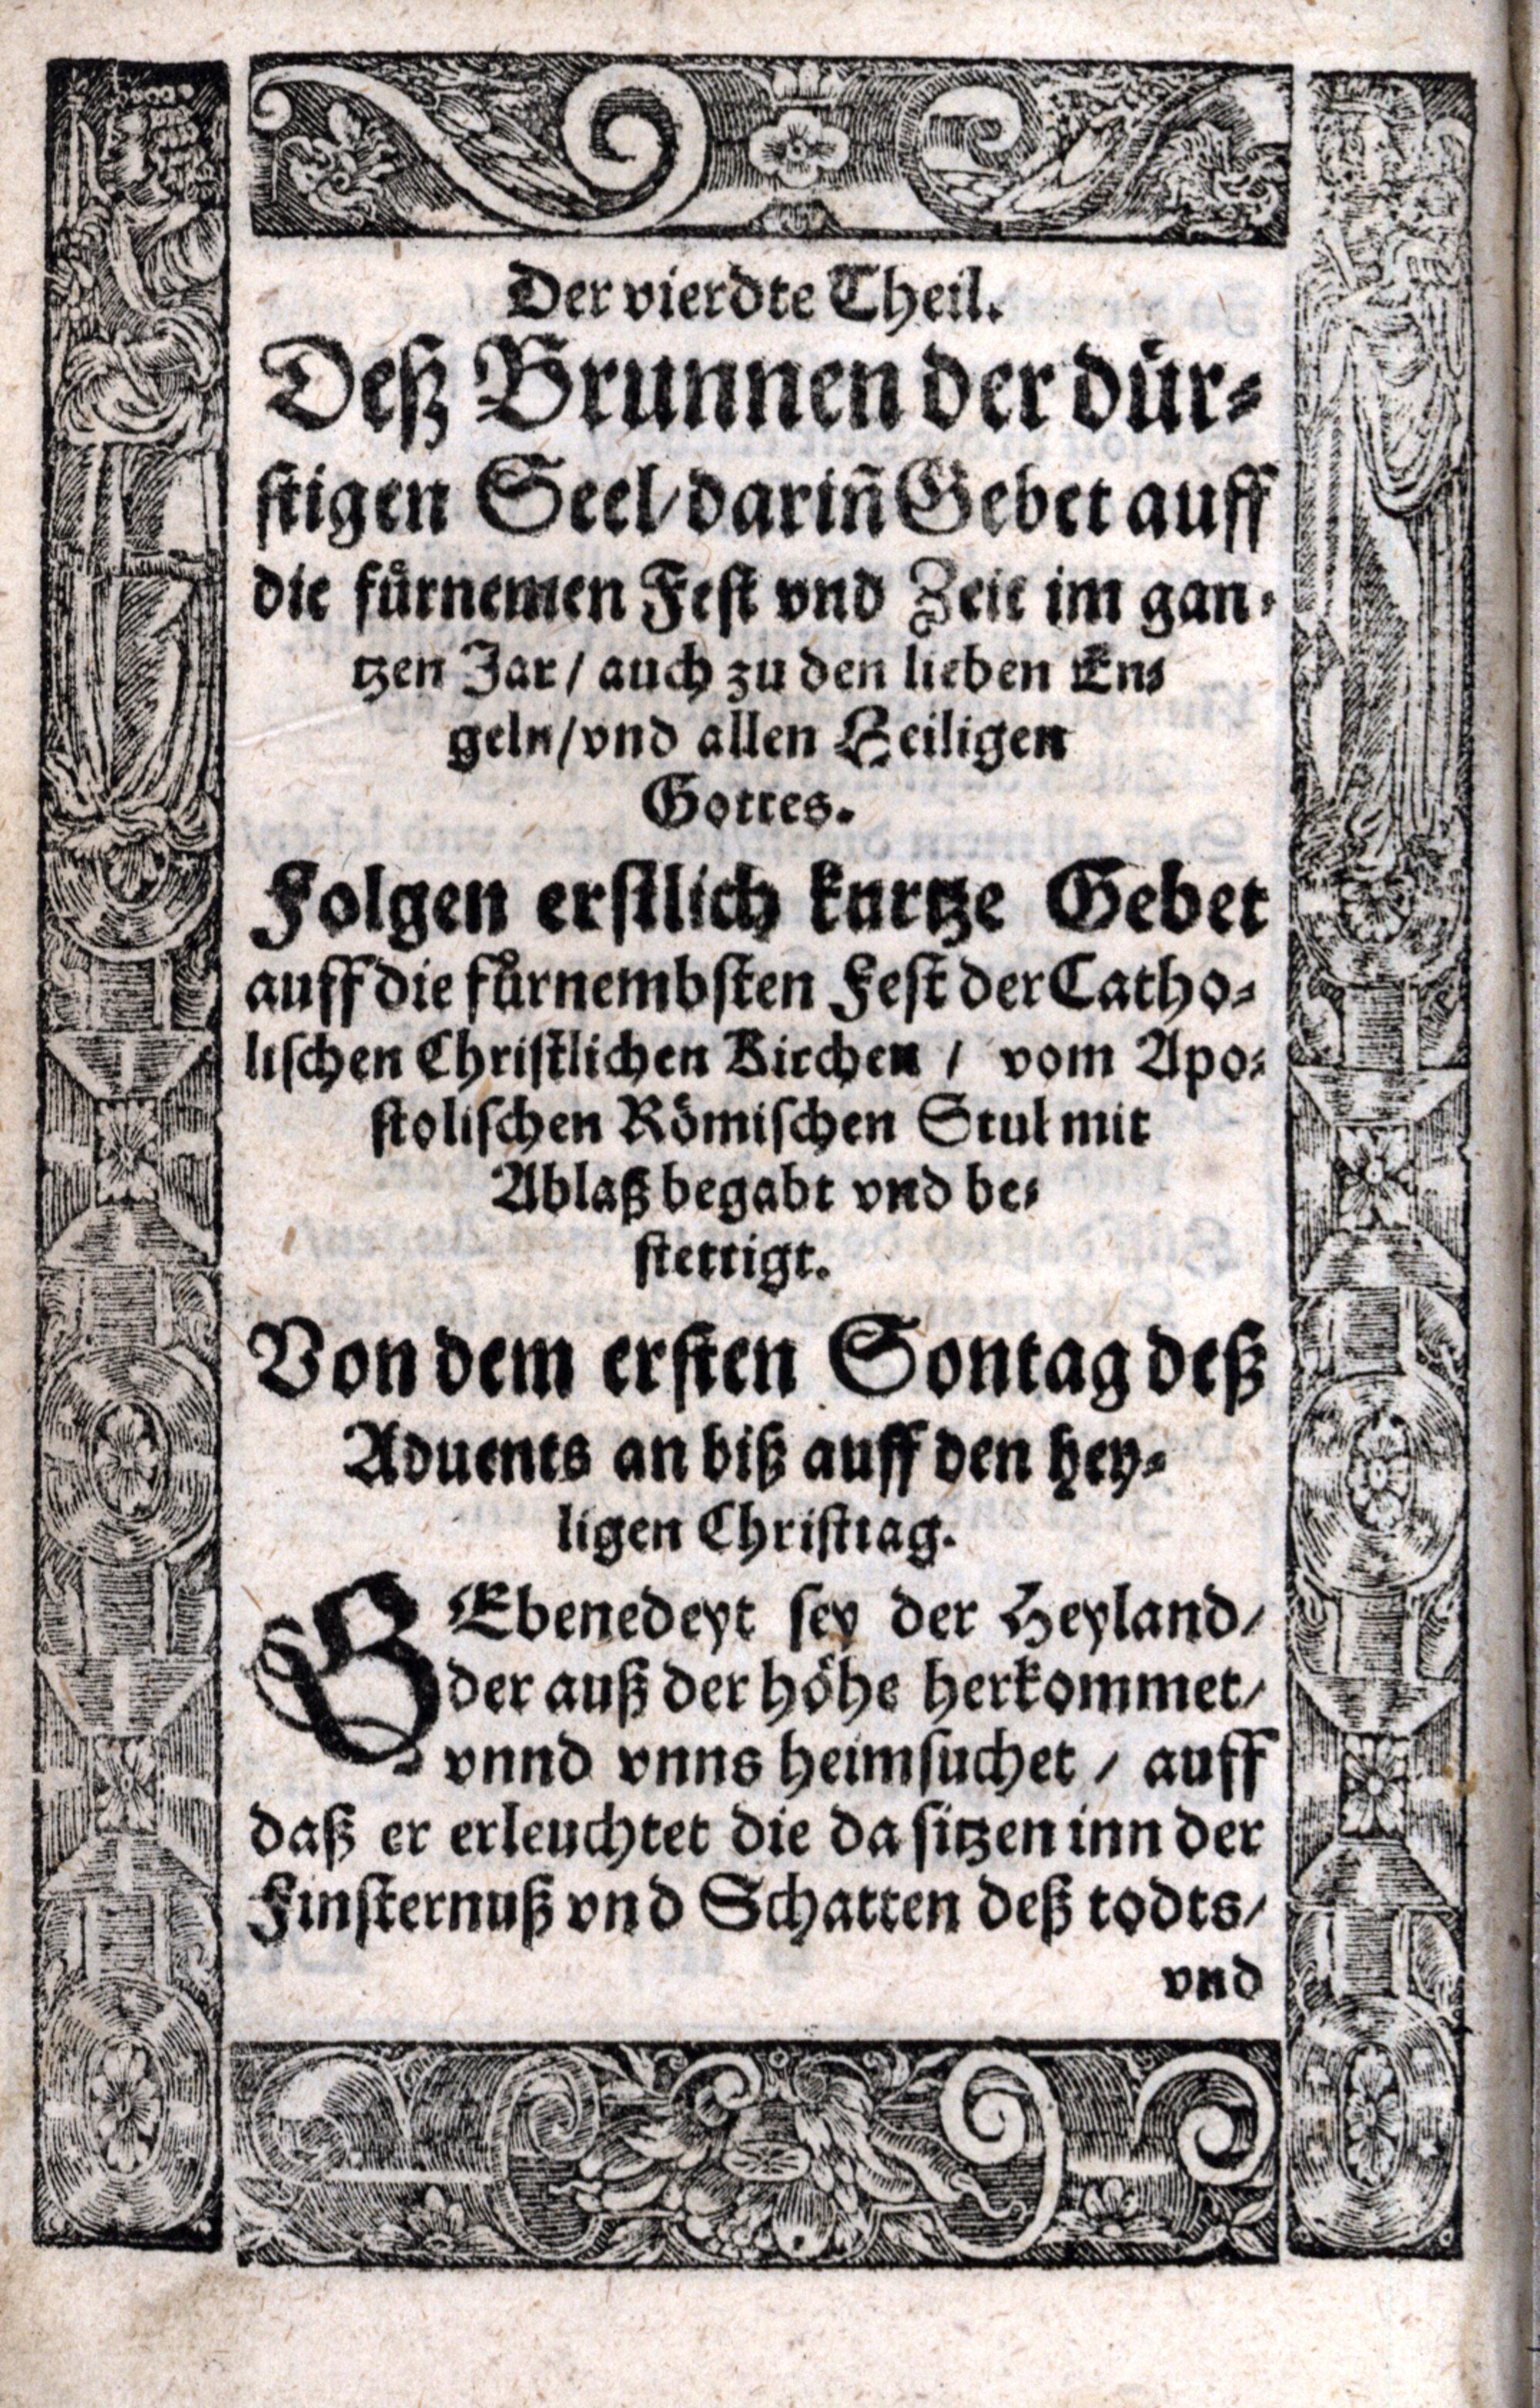 Der vierdte Theil.
Deß Brunnen der dür⸗
ſtigen Seel/ darin̄ Gebet auff
die fuͤrnemen Feſt vnd Zeit im gan⸗
tzen Jar / auch zu den lieben En⸗
geln / vnd allen Heiligen
Gottes.
Folgen erſtlich kurtze Gebet
auff die fuͤrnembſten Feſt der Catho⸗
liſchen Chriſtlichen Kirchen / vom Apo⸗
ſtoliſchen Roͤmiſchen Stul mit
Ablaß begabt vnd be⸗
ſtettigt.
Von dem erſten Sontag deß
Aduents an biß auff den hey⸗
ligen Chriſttag.
GEbenedeyt ſey der Heyland/
der auß der hoͤhe herkommet/
vnnd vnns heimſuchet / auff
daß er erleuchtet die da ſitzen inn der
Finſternuß vnd Schatten deß todts/
vnd